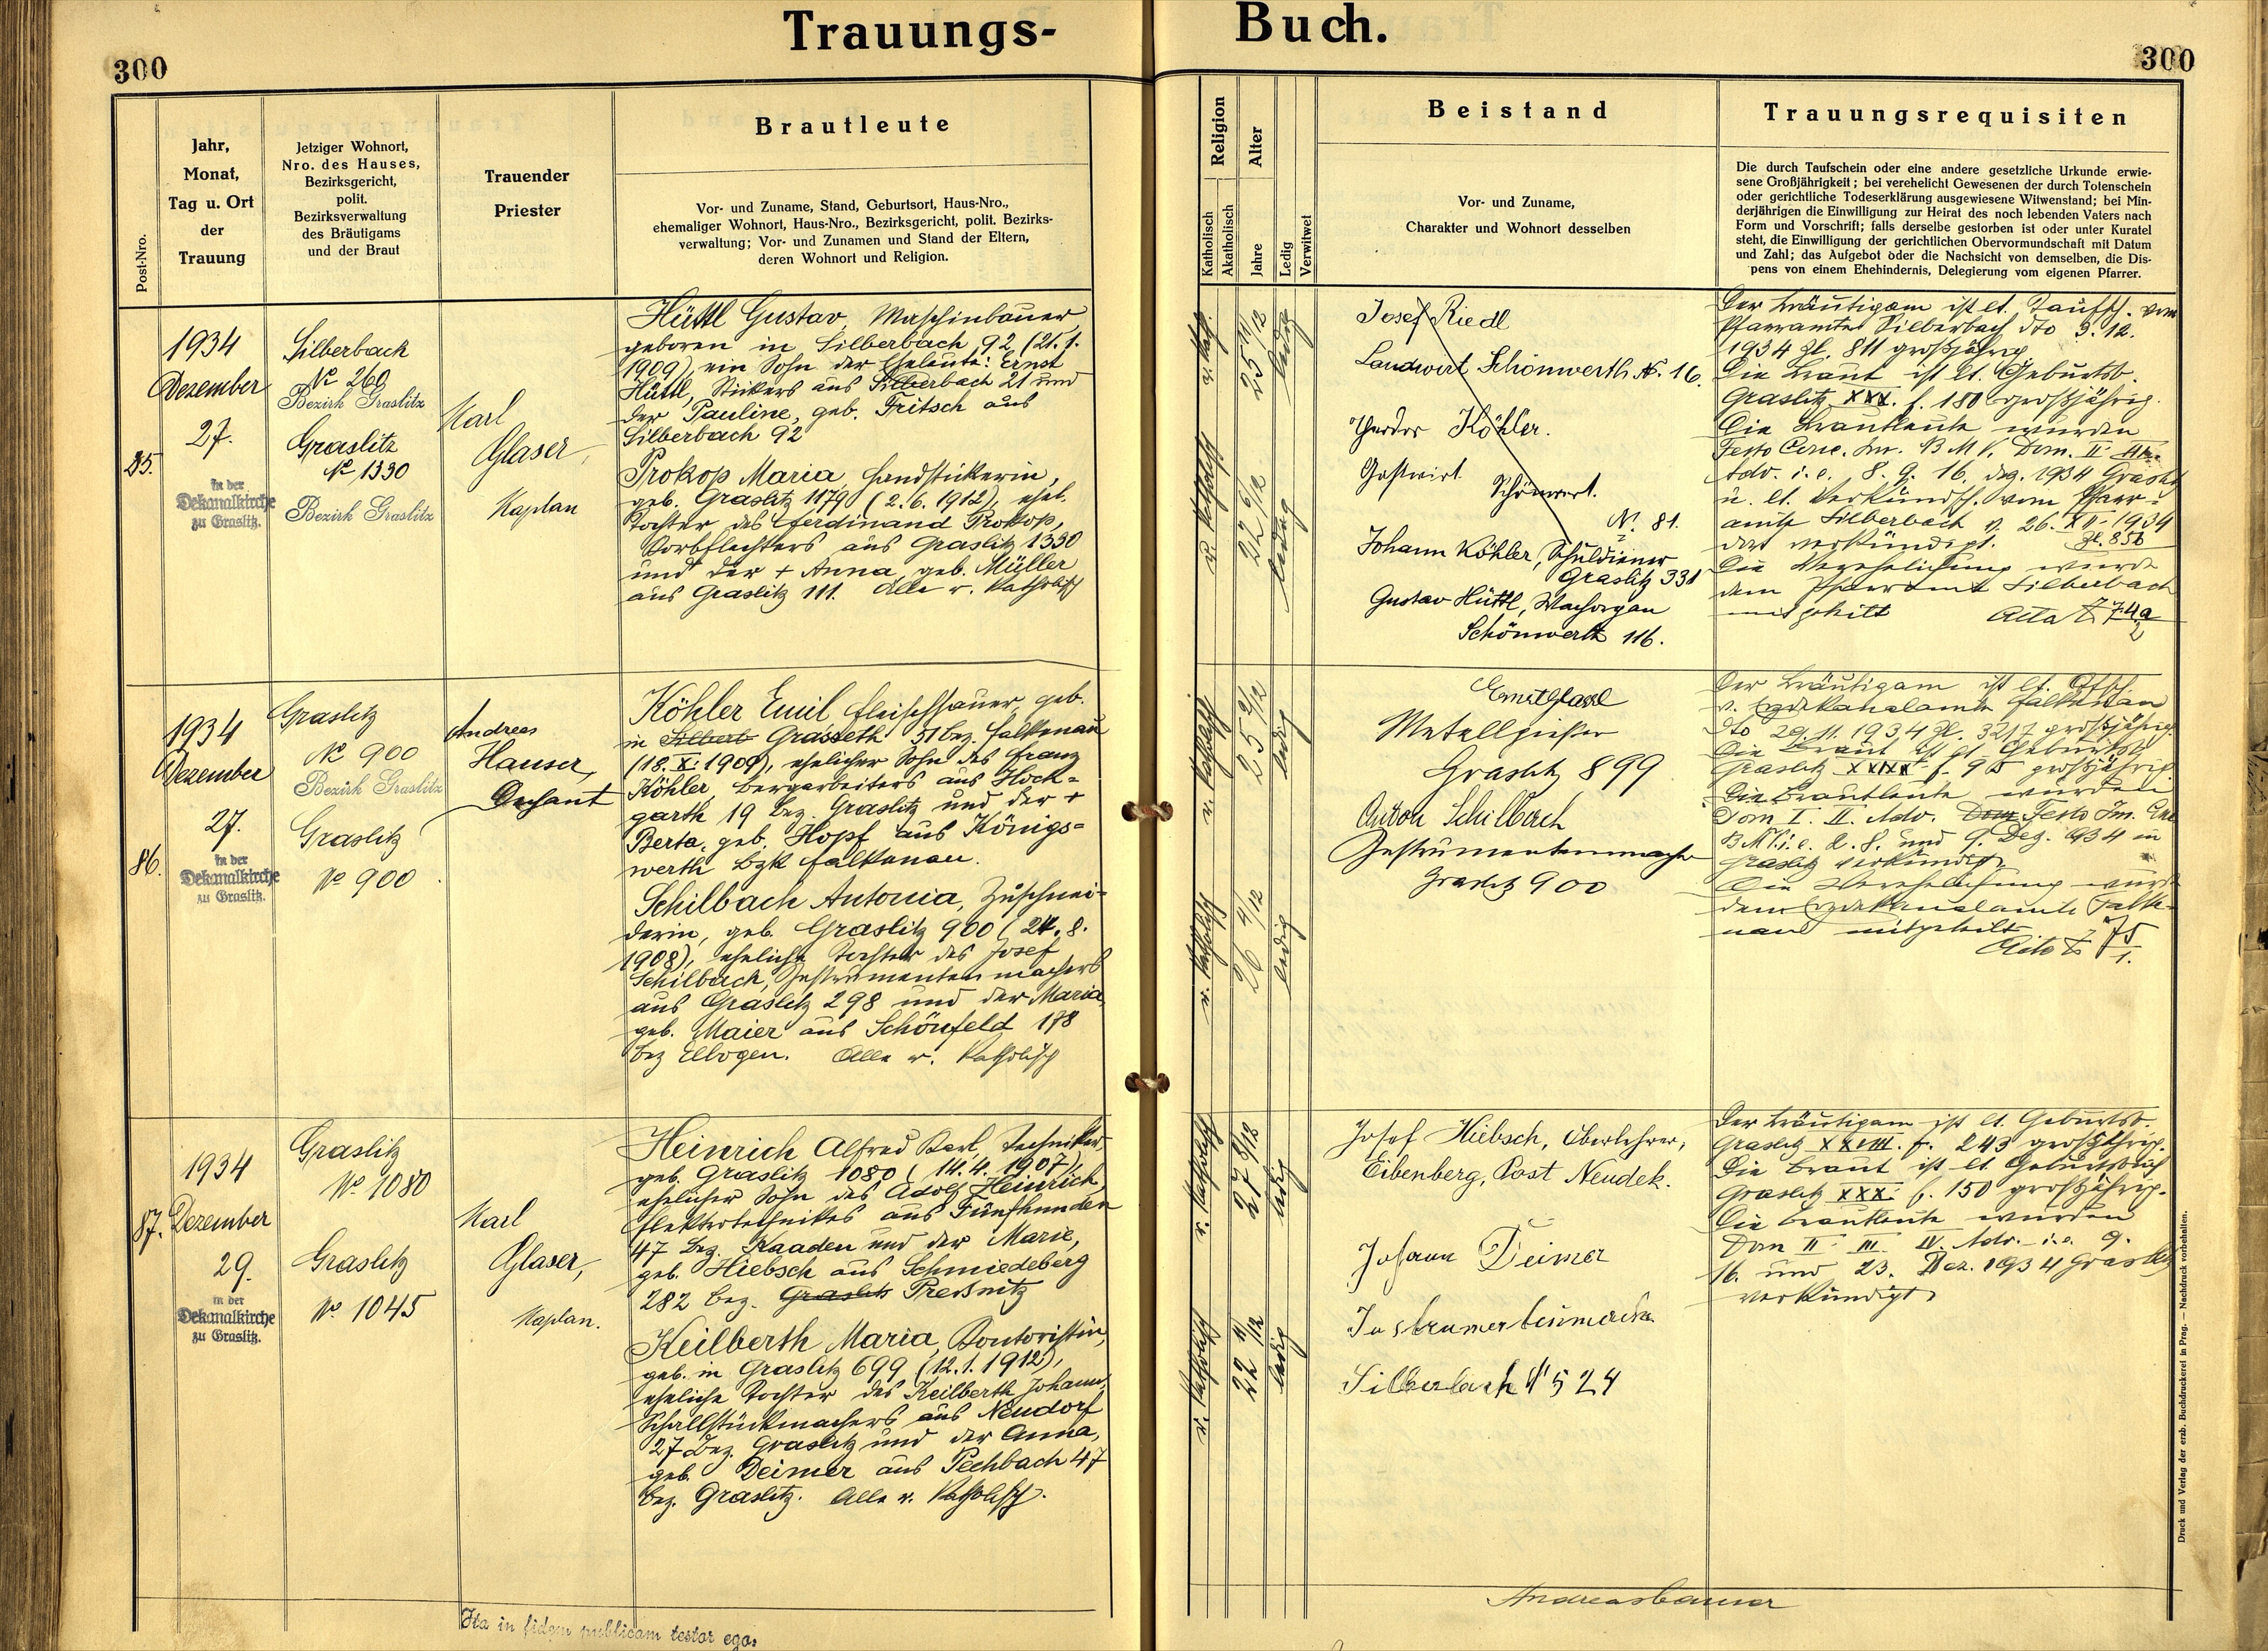 Trauungs-
Buch.
300
300
Post-Nro.
Jahr,
Monat,
Tag u. Ort
der
Trauung
Jetziger Wohnort,
Nro. des Hauses,
Bezirksgericht,
polit.
Bezirksverwaltung
des Bräutigams
und der Braut
Trauender
Priester
Brautleute
Vor- und Zuname, Stand, Geburtsort, Haus-Nro.,
ehemaliger Wohnort, Haus-Nro., Bezirksgericht, polit. Bezirks-
verwaltung; Vor- und Zunamen und Stand der Eltern,
deren Wohnort und Religion.
Religion
Katholisch
Akatholisch
Alter
Jahre
Ledig
Verwitwet
Beistand
Vor- und Zuname,
Charakter und Wohnort desselben
Trauungsrequisiten
Die durch Taufschein oder eine andere gesetzliche Urkunde erwie-
sene Großjährigkeit; bei verehelicht Gewesenen der durch Totenschein
oder gerichtliche Todeserklärung ausgewiesene Witwenstand; bei Min-
derjährigen die Einwilligung zur Heirat des noch lebenden Vaters nach
Form und Vorschrift; falls derselbe gestorben ist oder unter Kuratel
steht, die Einwilligung der gerichtlichen Obervormundschaft mit Datum
und Zahl; das Aufgebot oder die Nachsicht von demselben, die Dis-
pens von einem Ehehindernis, Delegierung vom eigenen Pfarrer.
85.
1934
Dezember
27.
In der
Dekanalkirche
zu Graslitz.
Silberbach
No 260
Bezirk Graslitz
Graslitz
No 1330
Bezirk Graslitz
Karl
Glaser,
Kaplan
Hüttl Gustav, Maschinbauer
geboren in Silberbach 92 (21.1.
1909), ein Sohn der Eheleute: Ernst
Hüttl, Stickers aus Silberbach 21 und
der Pauline, geb. Fritsch aus
Silberbach 92
Prokop Maria, Handstickerin,
geb. Graslitz 1179 (2.6.1912), ehel.
Tochter des Ferdinand Prokop,
Korbflechters aus Graslitz 1330
und der + Anna, geb. Müller
aus Graslitz 111. Alle r. katholisch
r. kath.
25 11/12
ledig
r. katholisch
22 6/12
ledig
Josef Riedl
Landwirt Schönwerth No. 16.
Theodor Köhler.
Gastwirt Schönwert.
No. 81.
Johann Köhler, Schuldiener
Graslitz 331
Gustav Hüttl,
Schönwerth 116.
Der Bräutigam ist lt. Taufsch. vom
Pfarramte Silberbach dto 9.12.
1934 Zl. 811 großjährig
Die Braut ist lt. Geburtsb.
Graslitz XXX. f. 180 großjährig.
Die Brautleute wurden
Festo Conc. Im. B M V. Dom. II III.
Adv. i. e. 8. 9. 16. Dez. 1934 Graslitz
u. lt. Verkündsch. vom Pfarr-
amte Silberbach v. 26. XII. 1934
dort verkündigt. Zl. 856
Die Verehelichung wurde
dem Pfarramt Silberbach
mitgeteilt
86.
1934
Dezember
27.
In der
Dekanalkirche
zu Graslitz.
Graslitz
No 900
Bezirk Graslitz
Graslitz
No 900
Andreas
Hauser,
Dechant
Köhler Emil, Fleischhauer, geb.
in Silberb Grasseth 51 bez. Falkenau
(18.X.1909), ehelicher Sohn des Franz
Köhler, Bergarbeiters aus Hoch-
garth 19 bez. Graslitz und der +
Berta, geb. Hopf aus Königs-
werth bzk Falkenau.
Schilbach Antonia, Zuschnei-
derin, geb. Graslitz 900 (24.8.
1908), eheliche Tochter des Josef
Schilbach, Instrumentenmachers
aus Graslitz 298 und der Maria
geb. Maier aus Schönfeld 178
bez Elbogen. Alle r. katholisch
r. katholisch
25 2/12
ledig
r. katholisch
26 4/12
ledig
Metallgießer
Graslitz 899
Anton Schilbach
Instrumentenmacher
Graslitz 900
Der Bräutigam ist lt.
v. Erzdekanalamte Falkenau
dto 29.11.1934 Zl. 3217 großjährig.
Die Braut ist lt. Geburtsb.
Graslitz großjährig.
Die Brautleute wurden
Dom I. II. Adv. Dom Festo Im.
B M V. i. e. 2. 8. und 9. Dez. 1934 in
Graslitz verkündigt.
Die Verehelichung wurde
dem Erzdekanalamte Falke-
nau mitgeteilt
87.
1934
Dezember
29.
In der
Dekanalkirche
zu Graslitz.
Graslitz
No. 1080
Graslitz
No. 1045
Karl
Glaser,
Kaplan.
Heinrich Alfred Karl, Techniker,
geb. Graslitz 1080 (14.4.1907),
ehelicher Sohn des Adolf Heinrich
Elektrotechnikers aus Fünfhunden
47 bez. Kaaden und der Marie,
geb. Hiebsch aus Schmiedeberg
282 bez. Graslitz Preßnitz
Keilberth Maria, Kontoristin,
geb. in Graslitz 699 (12.1.1912),
eheliche Tochter des Keilberth Johann,
Schallstückmachers aus Neudorf
27 bez. Graslitz und der Anna,
geb. Deimer aus Pechbach 47
bez. Graslitz. Alle r. katholisch.
r. katholisch
27 8/12
ledig
r. katholisch
22 11/12
ledig
Josef Hiebsch, Oberlehrer,
Eibenberg, Post Neudek.
Johann Deimer
Silberbach No 524
Der Bräutigam ist lt. Geburtsb.
Graslitz XXVIII. f. 243 großjährig.
Die Braut ist lt. Geburtsbuch
Graslitz XXX. f. 150 großjährig.
Die Brautleute wurden
Dom II III IV. Adv. i. e. 9.
16. und 23. Dez. 1934 Graslitz
verkündigt
Ita in fidem publicam testor ego:
Andreas Hauser
Druck und Verlag der erzb. Buchdruckerei in Prag. — Nachdruck vorbehalten.